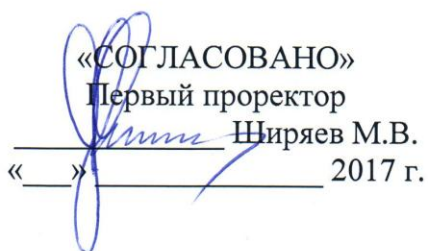 «СОГЛАСОВАНО»
Первый проректор
____________ Ширяев М.В.
«___» ____________ 2017 г.